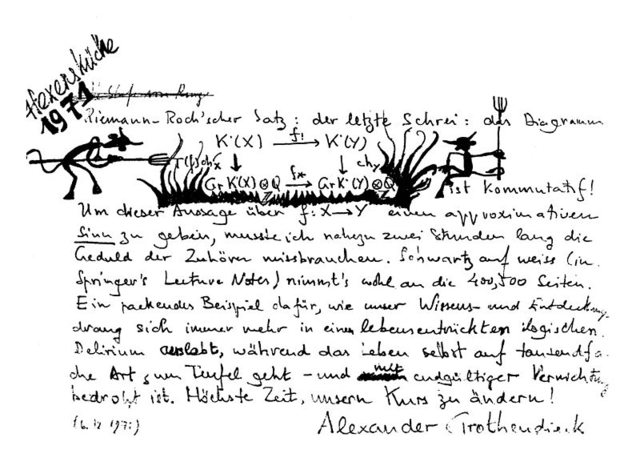 Hexenküche
1971
Riemann-Roch'scher Satz: der letzte Schrei: das Diagramm
K˙(X) f! K˙(Y)
T(f)chx chy
Gr K˙(X)⊗Q f* Gr K˙(Y)⊗Q
ist kommutatif!
Um dieser Aussage über f: X→Y einen approximativen
Sinn zu geben, musste ich nahezu zwei Stunden lang die
Geduld der Zuhörer missbrauchen. Schwartz auf weiss (in
Springer's Lecture Notes) nimmt's wohl an die 400, 500 Seiten.
Ein packendes Beispiel dafür, wie unser Wissens- und Entdeckungs-
drang sich immer mehr in einem lebensentrückten logischen
Delirium auslebt, während das Leben selbst auf tausendfa-
che Art zum Teufel geht - und mit endgültiger Vernichtung
bedroht ist. Höchste Zeit, unsern Kurs zu ändern!
Alexander Grothendieck